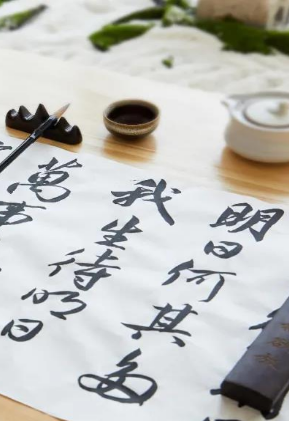 明日何其多
我生待明日
萬事